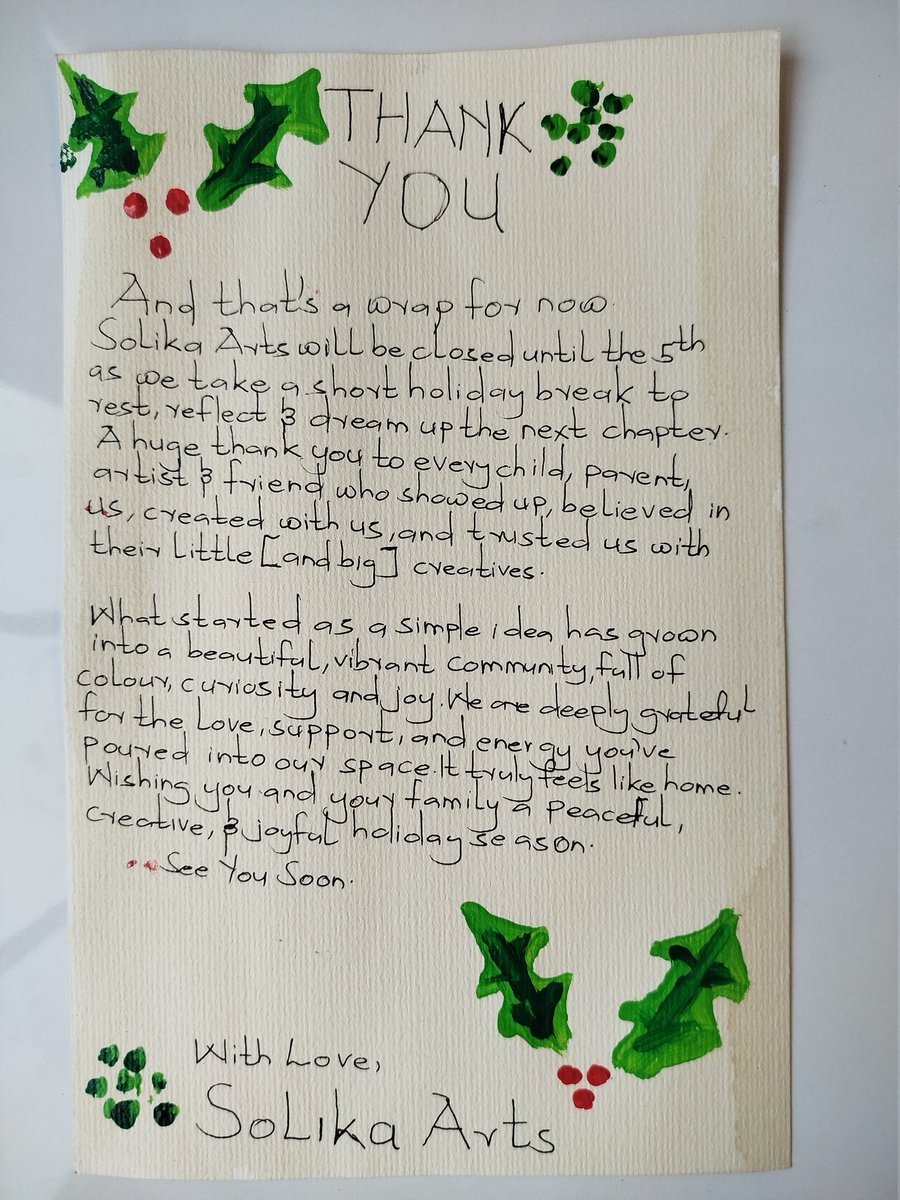 THANK
YOU
And that's a wrap for now.
Solika Arts will be closed until the 5th
as we take a short holiday break to
rest, reflect & dream up the next chapter.
A huge thank you to every child, parent,
artist & friend who showed up, believed in
us, created with us, and trusted us with
their little [and big] creatives.
What started as a simple idea has grown
into a beautiful, vibrant community, full of
colour, curiosity and joy. We are deeply grateful
for the love, support, and energy you've
poured into our space. It truly feels like home.
Wishing you and your family a peaceful,
creative, & joyful holiday season.
See You Soon.
With Love,
SoLika Arts